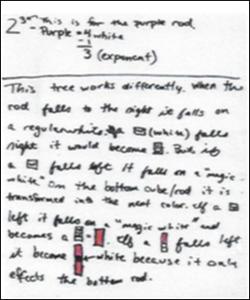 2³ ← This is for the purple rod
Purple = 4 white
- 1
3 (exponent)
This tree works differently. When the
rod falls to the right it falls on
a regular white. (white) falls
right it would become . But if
a falls left it falls on a "magic
white" on the bottom cube/rod it is
transformed into the next color. If a
left it falls on a "magic white" and
becomes a = . If a falls left
it become white because it only
effects the bottom rod.